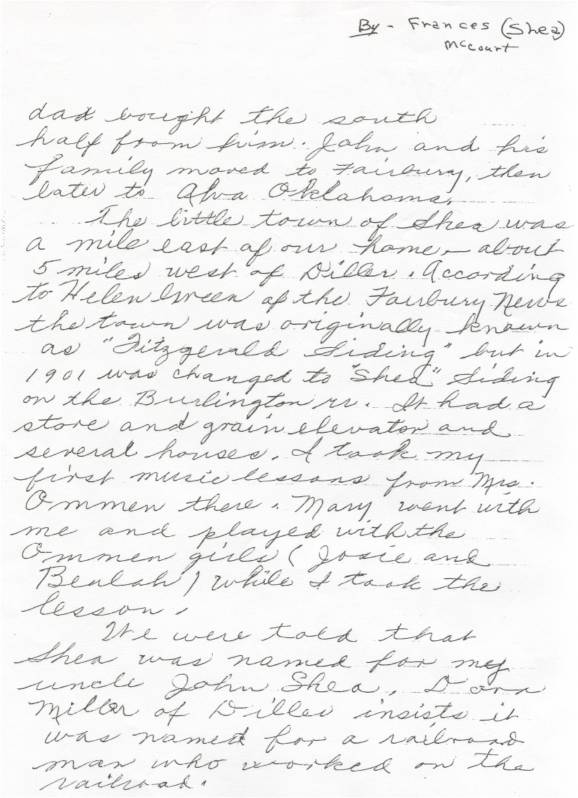 By - Frances (Shea)
McCourt
dad bought the south
half from him. John and his
family moved to Fairbury, then
later to Alva Oklahoma.
The little town of Shea was
a mile east of our home - about
5 miles west of Diller. According
to Helen Green of the Fairbury News
the town was originally known
as "Fitzgerald Siding" but in
1901 was changed to "Shea" Siding
on the Burlington rr. It had a
store and grain elevator and
several houses. I took my
first music lessons from Mrs.
Ommen there. Mary went with
me and played with the
Ommen girls (Josie and
Beulah) while I took the
lesson.
We were told that
Shea was named for my
uncle John Shea.
Miller of Diller insists it
was named for a railroad
man who worked on the
railroad.